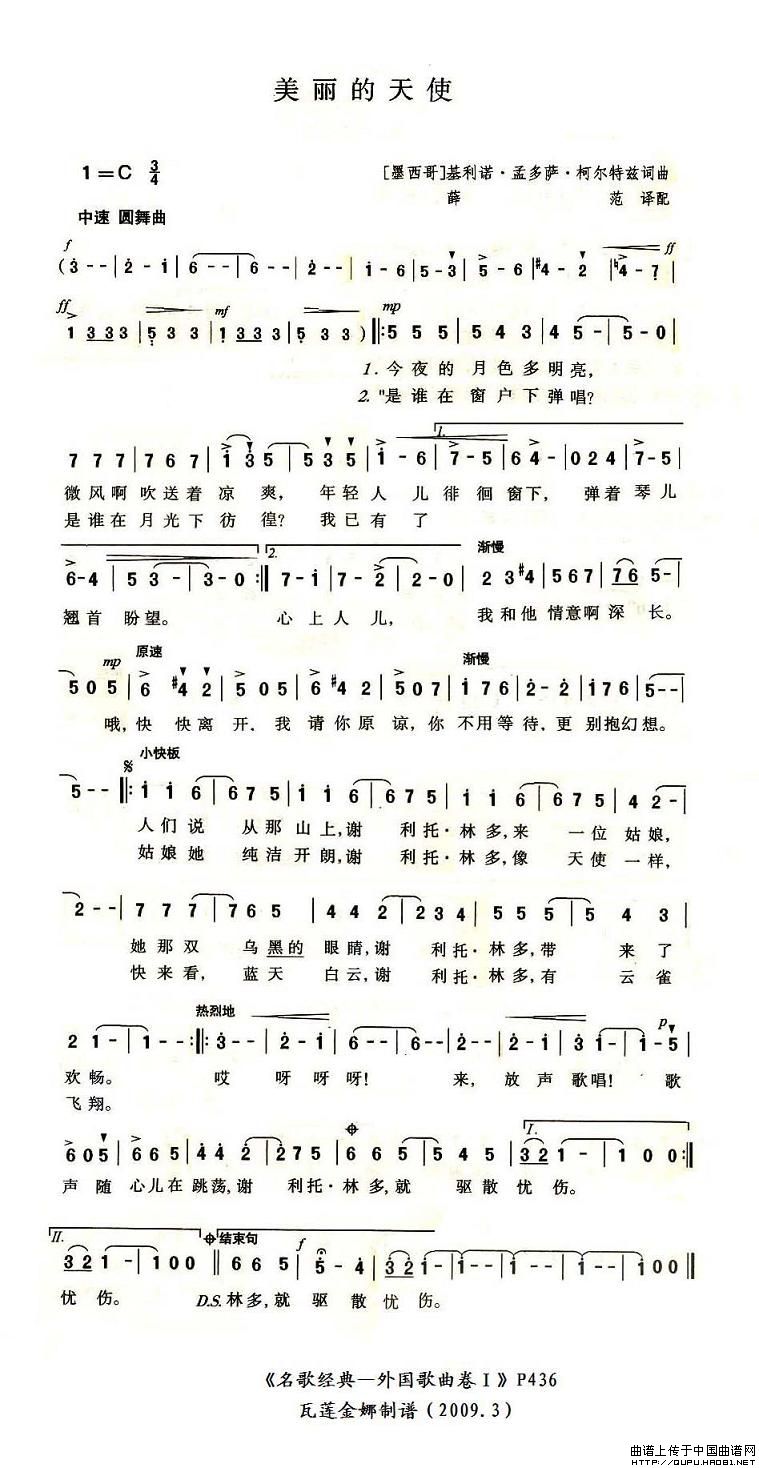 美丽的天使
1=C 3/4
[墨西哥]基利诺·孟多萨·柯尔特兹词曲
薛 范 译配
中速 圆舞曲
f ff
(3 - - | 2 - 1 | 6 - - | 6 - - | 2 - - | 1 - 6 | 5 - 3 | 5 - 6 | #4 - 2 | ♮4 - 7 |
ff mf mp
1 3 3 3 | 5 3 3 | 1 3 3 3 | 5 3 3 ) ‖: 5 5 5 | 5 4 3 | 4 5 - | 5 - 0 |
1.今夜的 月色多明亮,
2."是谁在 窗户下弹唱?
1.
7 7 7 | 7 6 7 | 1 3 5 | 5 3 5 | 1 - 6 | 7 - 5 | 6 4 - | 0 2 4 | 7 - 5 |
微风啊 吹送着 凉 爽, 年轻人 儿 徘 徊 窗下, 弹着 琴儿
是谁在 月光下 彷 徨? 我已有 了
2. 渐慢
6 - 4 | 5 3 - | 3 - 0 :‖ 7 - 1 | 7 - 2 | 2 - 0 | 2 3 #4 | 5 6 7 | 7 6 5 - |
翘首 盼望。 心上人 儿, 我和他 情意啊 深 长。
mp 原速 渐慢
5 0 5 | 6 #4 2 | 5 0 5 | 6 #4 2 | 5 0 7 | 1 7 6 | 2 - 2 | 1 7 6 | 5 - - |
哦,快 快离 开, 我 请你原 谅,你 不用等待,更 别抱幻想。
小快板
5 - - ‖: 1 1 6 | 6 7 5 | 1 1 6 | 6 7 5 | 1 1 6 | 6 7 5 | 4 2 - |
人们说 从那山上,谢 利托·林多,来 一位 姑娘,
姑娘她 纯洁开朗,谢 利托·林多,像 天使 一样,
2 - - | 7 7 7 | 7 6 5 | 4 4 2 | 2 3 4 | 5 5 5 | 5 4 3 |
她那双 乌黑的 眼睛,谢 利托·林多,带 来了
快来看, 蓝天 白云,谢 利托·林多,有 云雀
热烈地 p
2 1 - | 1 - - :‖: 3 - - | 2 - 1 | 6 - - | 6 - - | 2 - - | 2 - 3 | 3 1 - | 1 - 5 |
欢畅。 哎 呀呀呀! 来, 放声 歌唱! 歌
飞翔。
I.
6 0 5 | 6 6 5 | 4 4 2 | 2 7 5 | 6 6 5 | 5 4 5 | 3 2 1 - | 1 0 0 :‖
声 随 心儿在 跳荡,谢 利托·林多,就 驱散 忧伤。
II. 结束句 f
3 2 1 1 - | 1 0 0 ‖ 6 6 5 | 5 - 4 | 3 2 1 - | 1 - - | 1 - - | 1 0 0 ‖
忧 伤。 D.S.林多,就 驱 散 忧 伤。
《名歌经典—外国歌曲卷Ⅰ》P436
瓦莲金娜制谱(2009.3)
曲谱上传于中国曲谱网
HTTP://QUPU.HAO81.NET